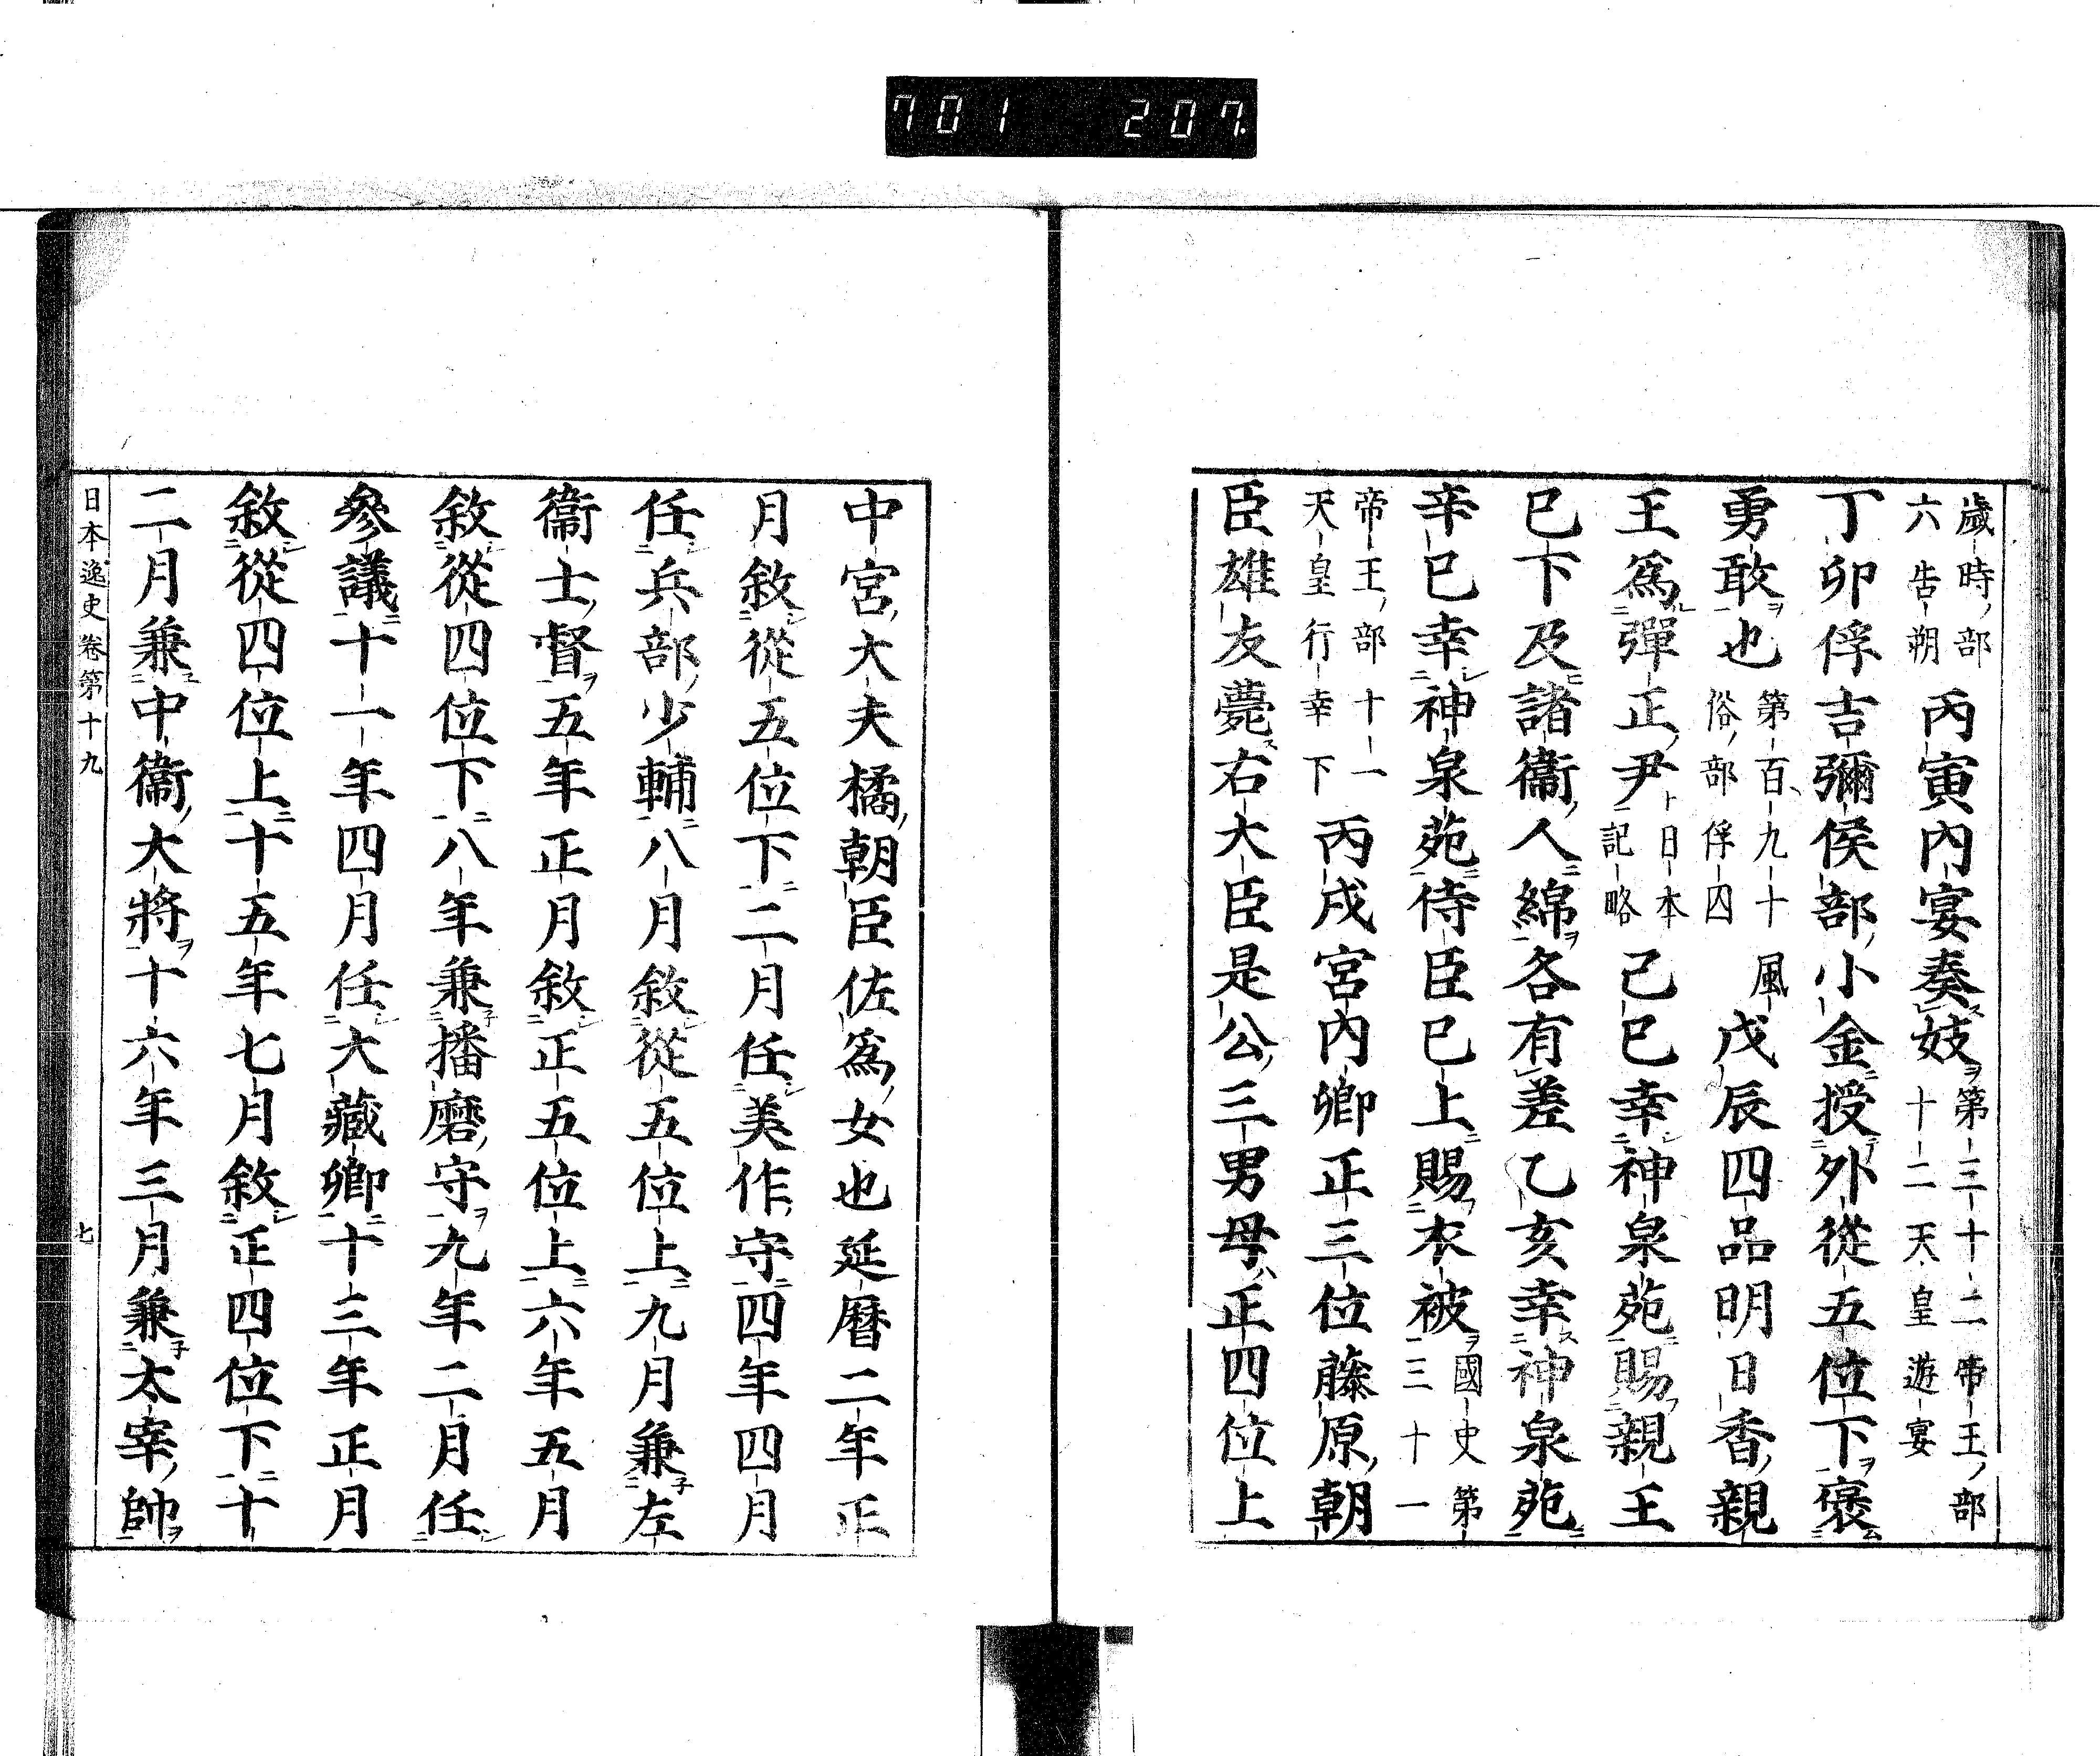 701 207
歲時部六告朔丙寅內宴奏妓第三十二帝王部十二天皇遊宴
丁卯俘吉彌侯部小金授外從五位下褒
勇敢也第百九十風俗部俘囚戊辰四品明日香親
王爲彈正尹日本記略己巳幸神泉苑賜親王
已下及諸衞人綿各有差乙亥幸神泉苑
辛巳幸神泉苑侍臣已上賜衣被國史第三十一
帝王部十一天皇行幸下丙戌宮內卿正三位藤原朝
臣雄友薨右大臣是公三男母正四位上
中宮大夫橘朝臣佐爲女也延曆二年正
月敘從五位下二月任美作守四年四月
任兵部少輔八月敘從五位上九月兼左
衞士督五年正月敘正五位上六年五月
敘從四位下八年兼播磨守九年二月任
參議十一年四月任大藏卿十三年正月
敘從四位上十五年七月敘正四位下十
二月兼中衞大將十六年三月兼太宰帥
日本逸史卷第十九 七